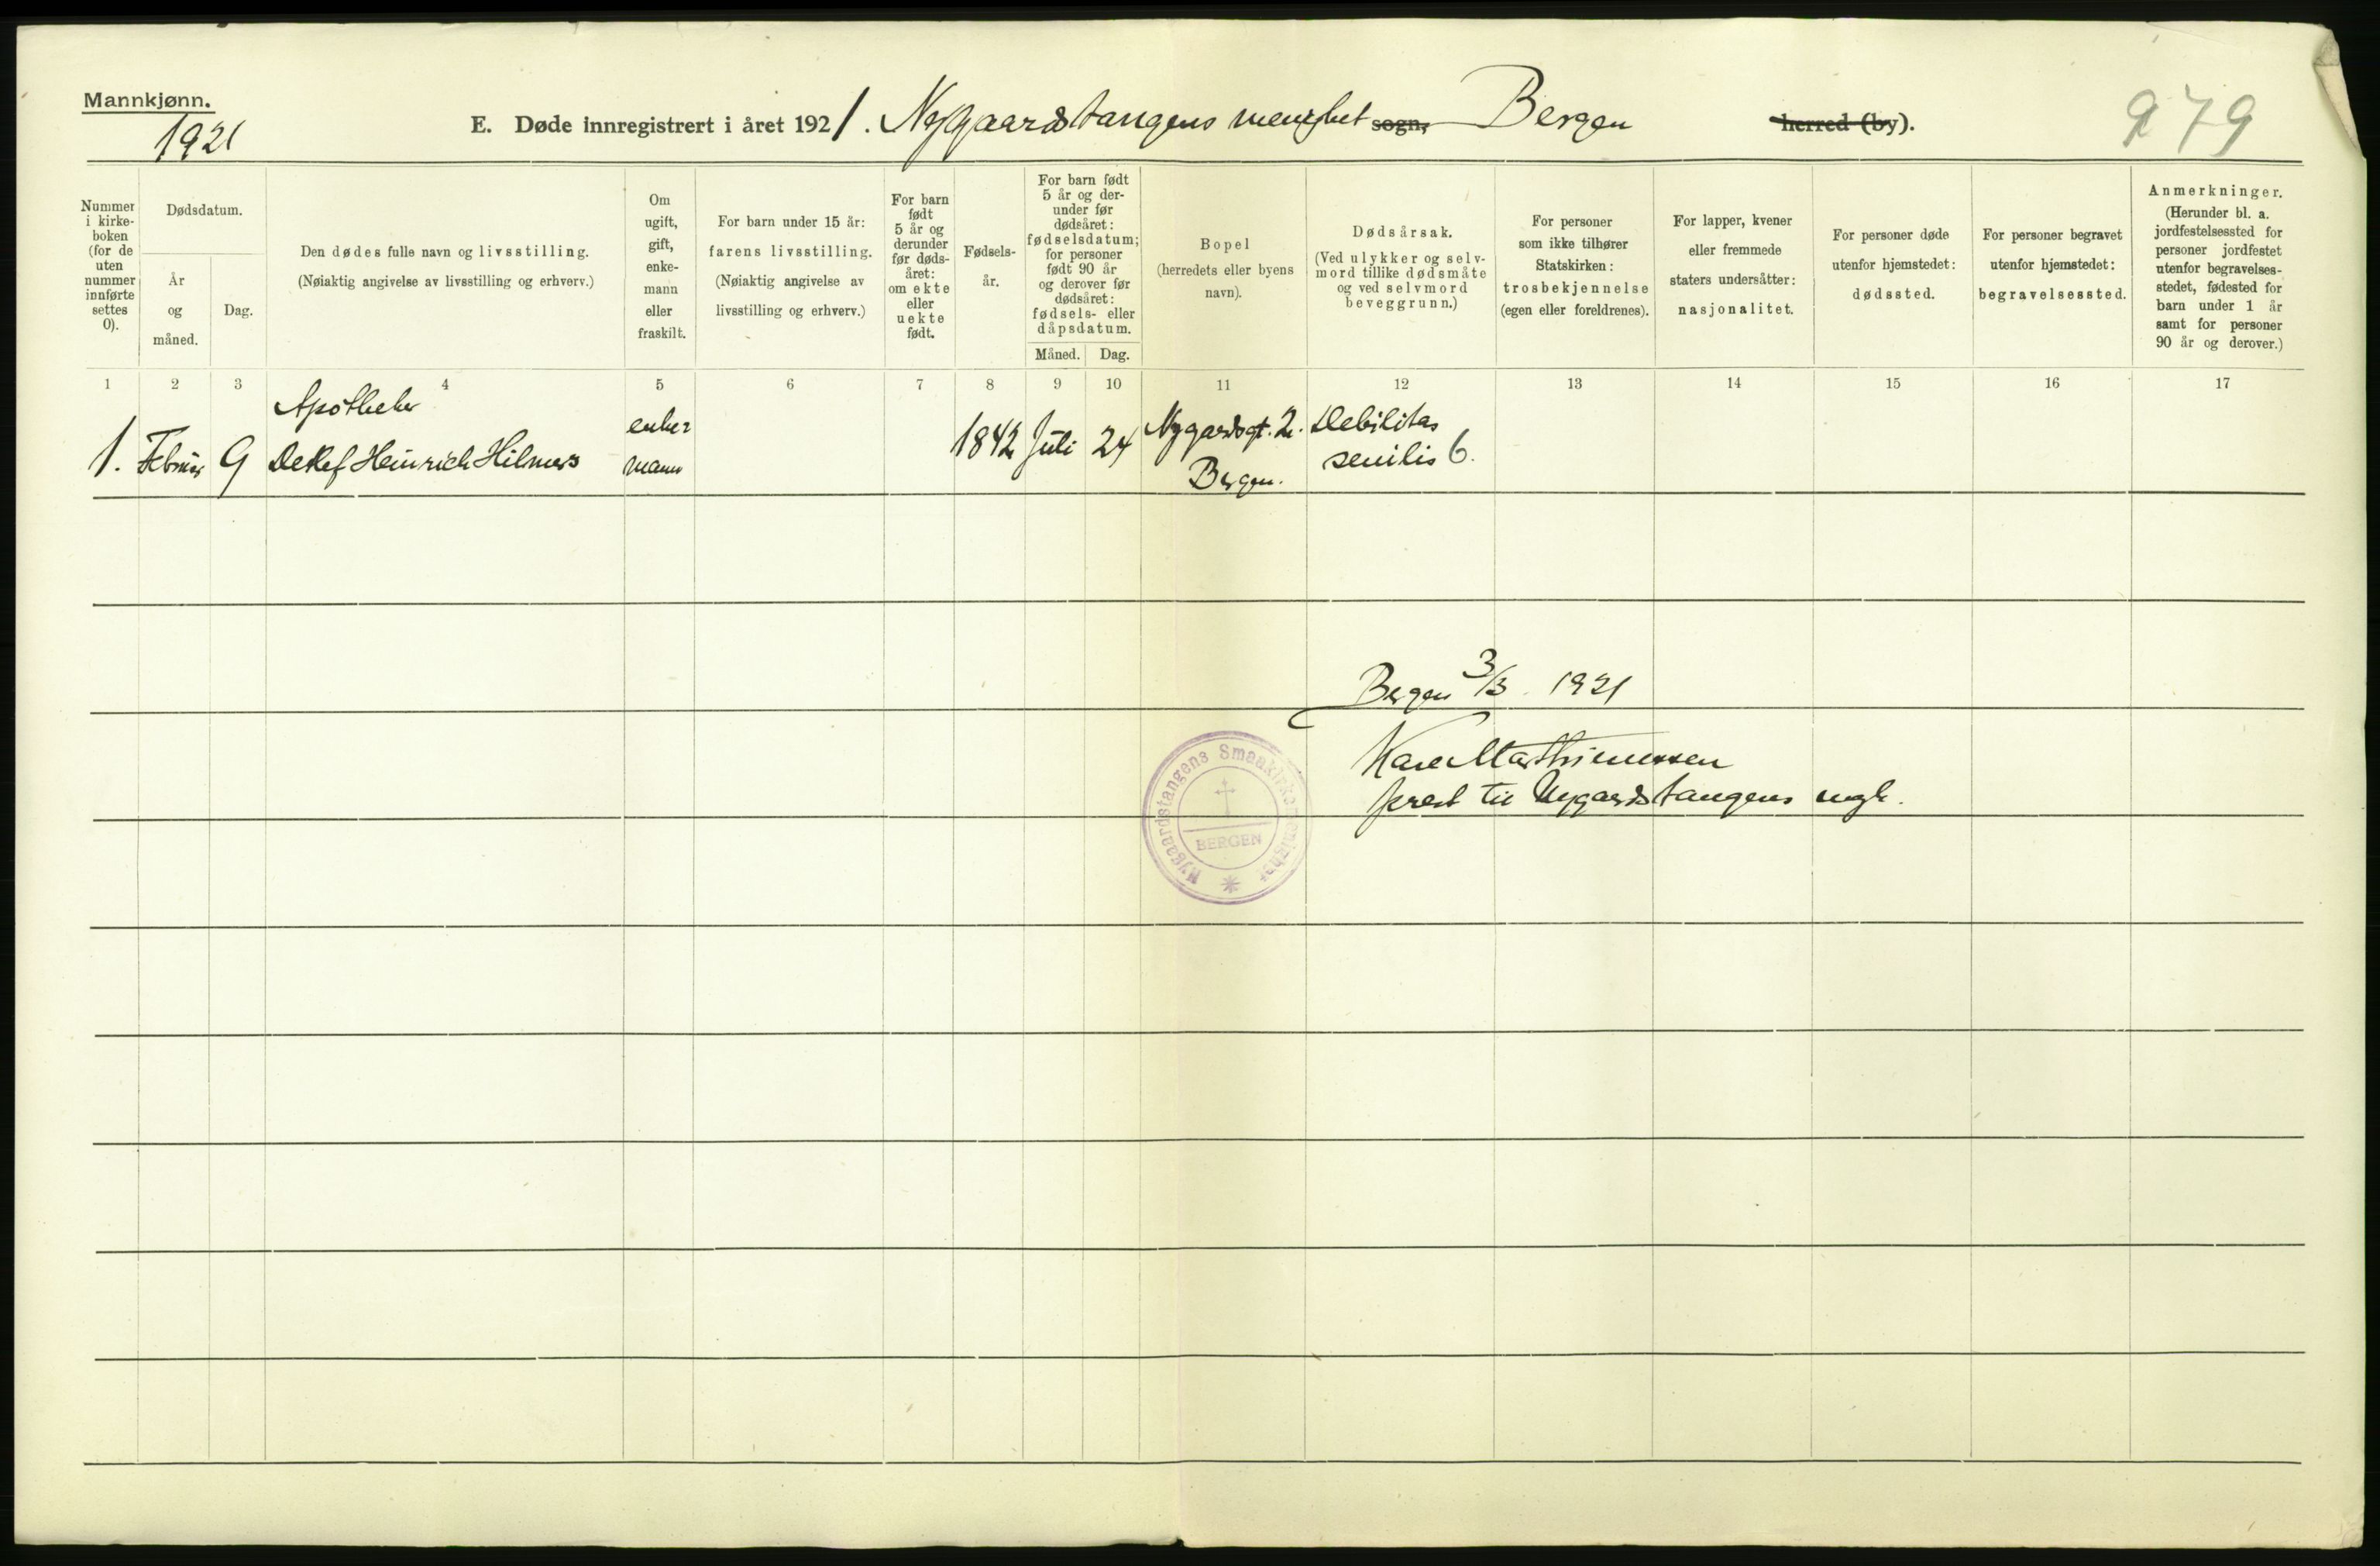 Mannkjønn.
1921
E. Døde innregistrert i året 1921. Nygaardstangens menighet sogn, Bergen herred (by).
979
Nummer i kirke- boken (for de uten nummer innførte settes 0).
Dødsdatum.
År og måned.
Dag.
Den dødes fulle navn og livsstilling.
(Nøiaktig angivelse av livsstilling og erhverv.)
Om ugift, gift, enke- mann eller fraskilt.
For barn under 15 år:
farens livsstilling.
(Nøiaktig angivelse av
livsstilling og erhverv.)
For barn født 5 år og derunder før døds- året: om ekte eller uekte født.
Fødsels- år.
For barn født 5 år og der- under før dødsåret: fødselsdatum; for personer født 90 år og derover før dødsåret: fødsels- eller dåpsdatum.
Måned. Dag.
Bopel
(herredets eller byens
navn).
Dødsårsak.
(Ved ulykker og selv-
mord tillike dødsmåte
og ved selvmord
beveggrunn.)
For personer
som ikke tilhører
Statskirken:
trosbekjennelse
(egen eller foreldrenes).
For lapper, kvener
eller fremmede
staters undersåtter:
nasjonalitet.
For personer døde
utenfor hjemstedet:
dødssted.
For personer begravet
utenfor hjemstedet:
begravelsessted.
Anmerkninger.
(Herunder bl. a.
jordfestelsessted for
personer jordfestet
utenfor begravelses-
stedet, fødested for
barn under 1 år
samt for personer
90 år og derover.)
1 2 3 4 5 6 7 8 9 10 11 12 13 14 15 16 17
Apotheker
1. Februar 9 Detlef Heinrich Hilmers
enke= mann
1842 Juli 24
Nygardsgt. 2.
Bergen.
Debilitas
senilis 6.
Bergen 3/3. 1921
Mathiesen
prest til Nygaardstangens mgh.
Nygaardstangens Smaakirkemenighet
BERGEN